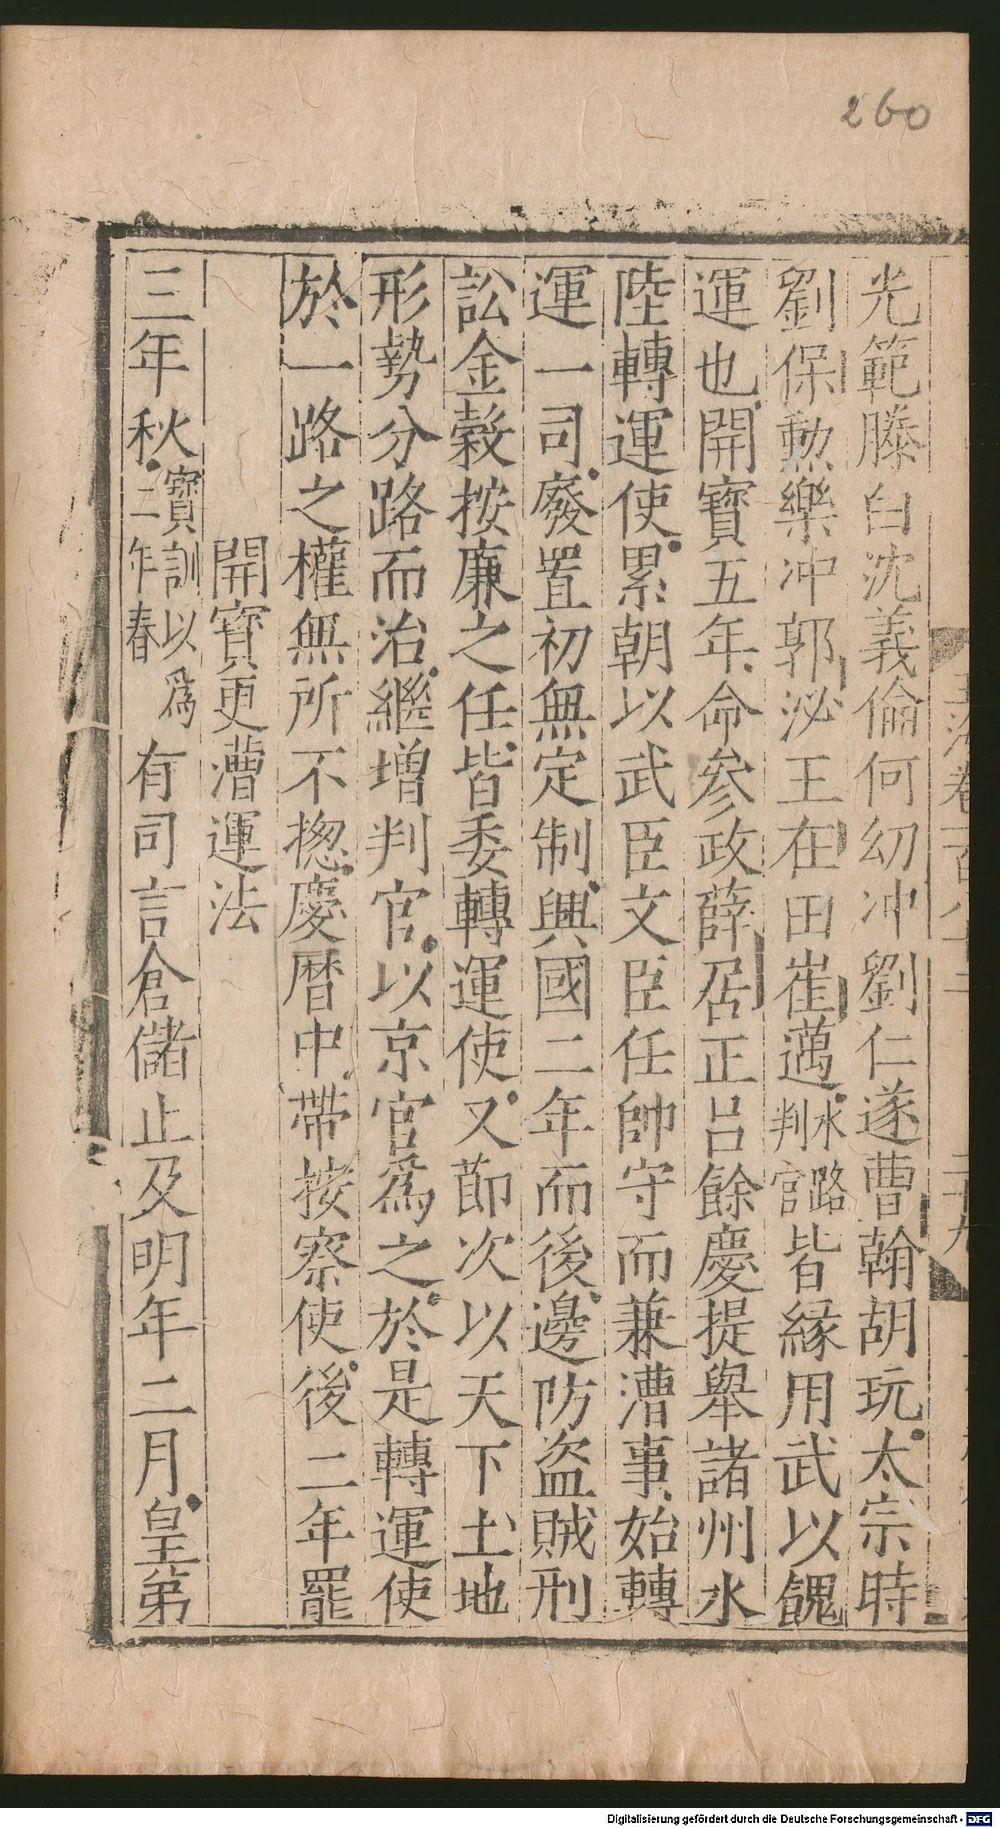 260
光範滕白沈義倫何幼冲劉仁遂曹翰胡玩太宗時
劉保勲樂冲郭泌王在田崔邁水路判官皆緣用武以餽
運也開寶五年命參政薛居正吕餘慶提舉諸州水
陸轉運使累朝以武臣文臣任帥守而兼漕事始轉
運一司廢置初無定制興國二年而後邊防盗賊刑
訟金榖按廉之任皆委轉運使又節次以天下土地
形勢分路而治繼增判官以京官爲之於是轉運使
於一路之權無所不揔慶曆中帶按察使後二年罷
開寶更漕運法
三年秋寶訓以爲二年春有司言倉儲止及明年二月皇第
玉海卷一百八十二
二十九
Digitalisierung gefördert durch die Deutsche Forschungsgemeinschaft - DFG